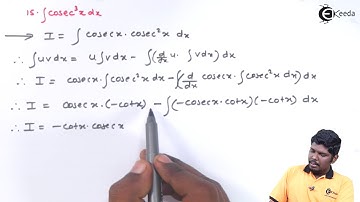 15. ∫cosec³x dx
Ekeeda
→ I = ∫ cosecx · cosec²x dx
∴ ∫uvdx = u∫vdx - ∫(d/dx u · ∫vdx) dx
∴ I = cosecx · ∫cosec²x dx - ∫(d/dx cosecx · ∫cosec²x dx) dx
∴ I = cosecx · (-cotx) - ∫(-cosecx · cotx)(-cotx) dx
∴ I = -cotx · cosecx